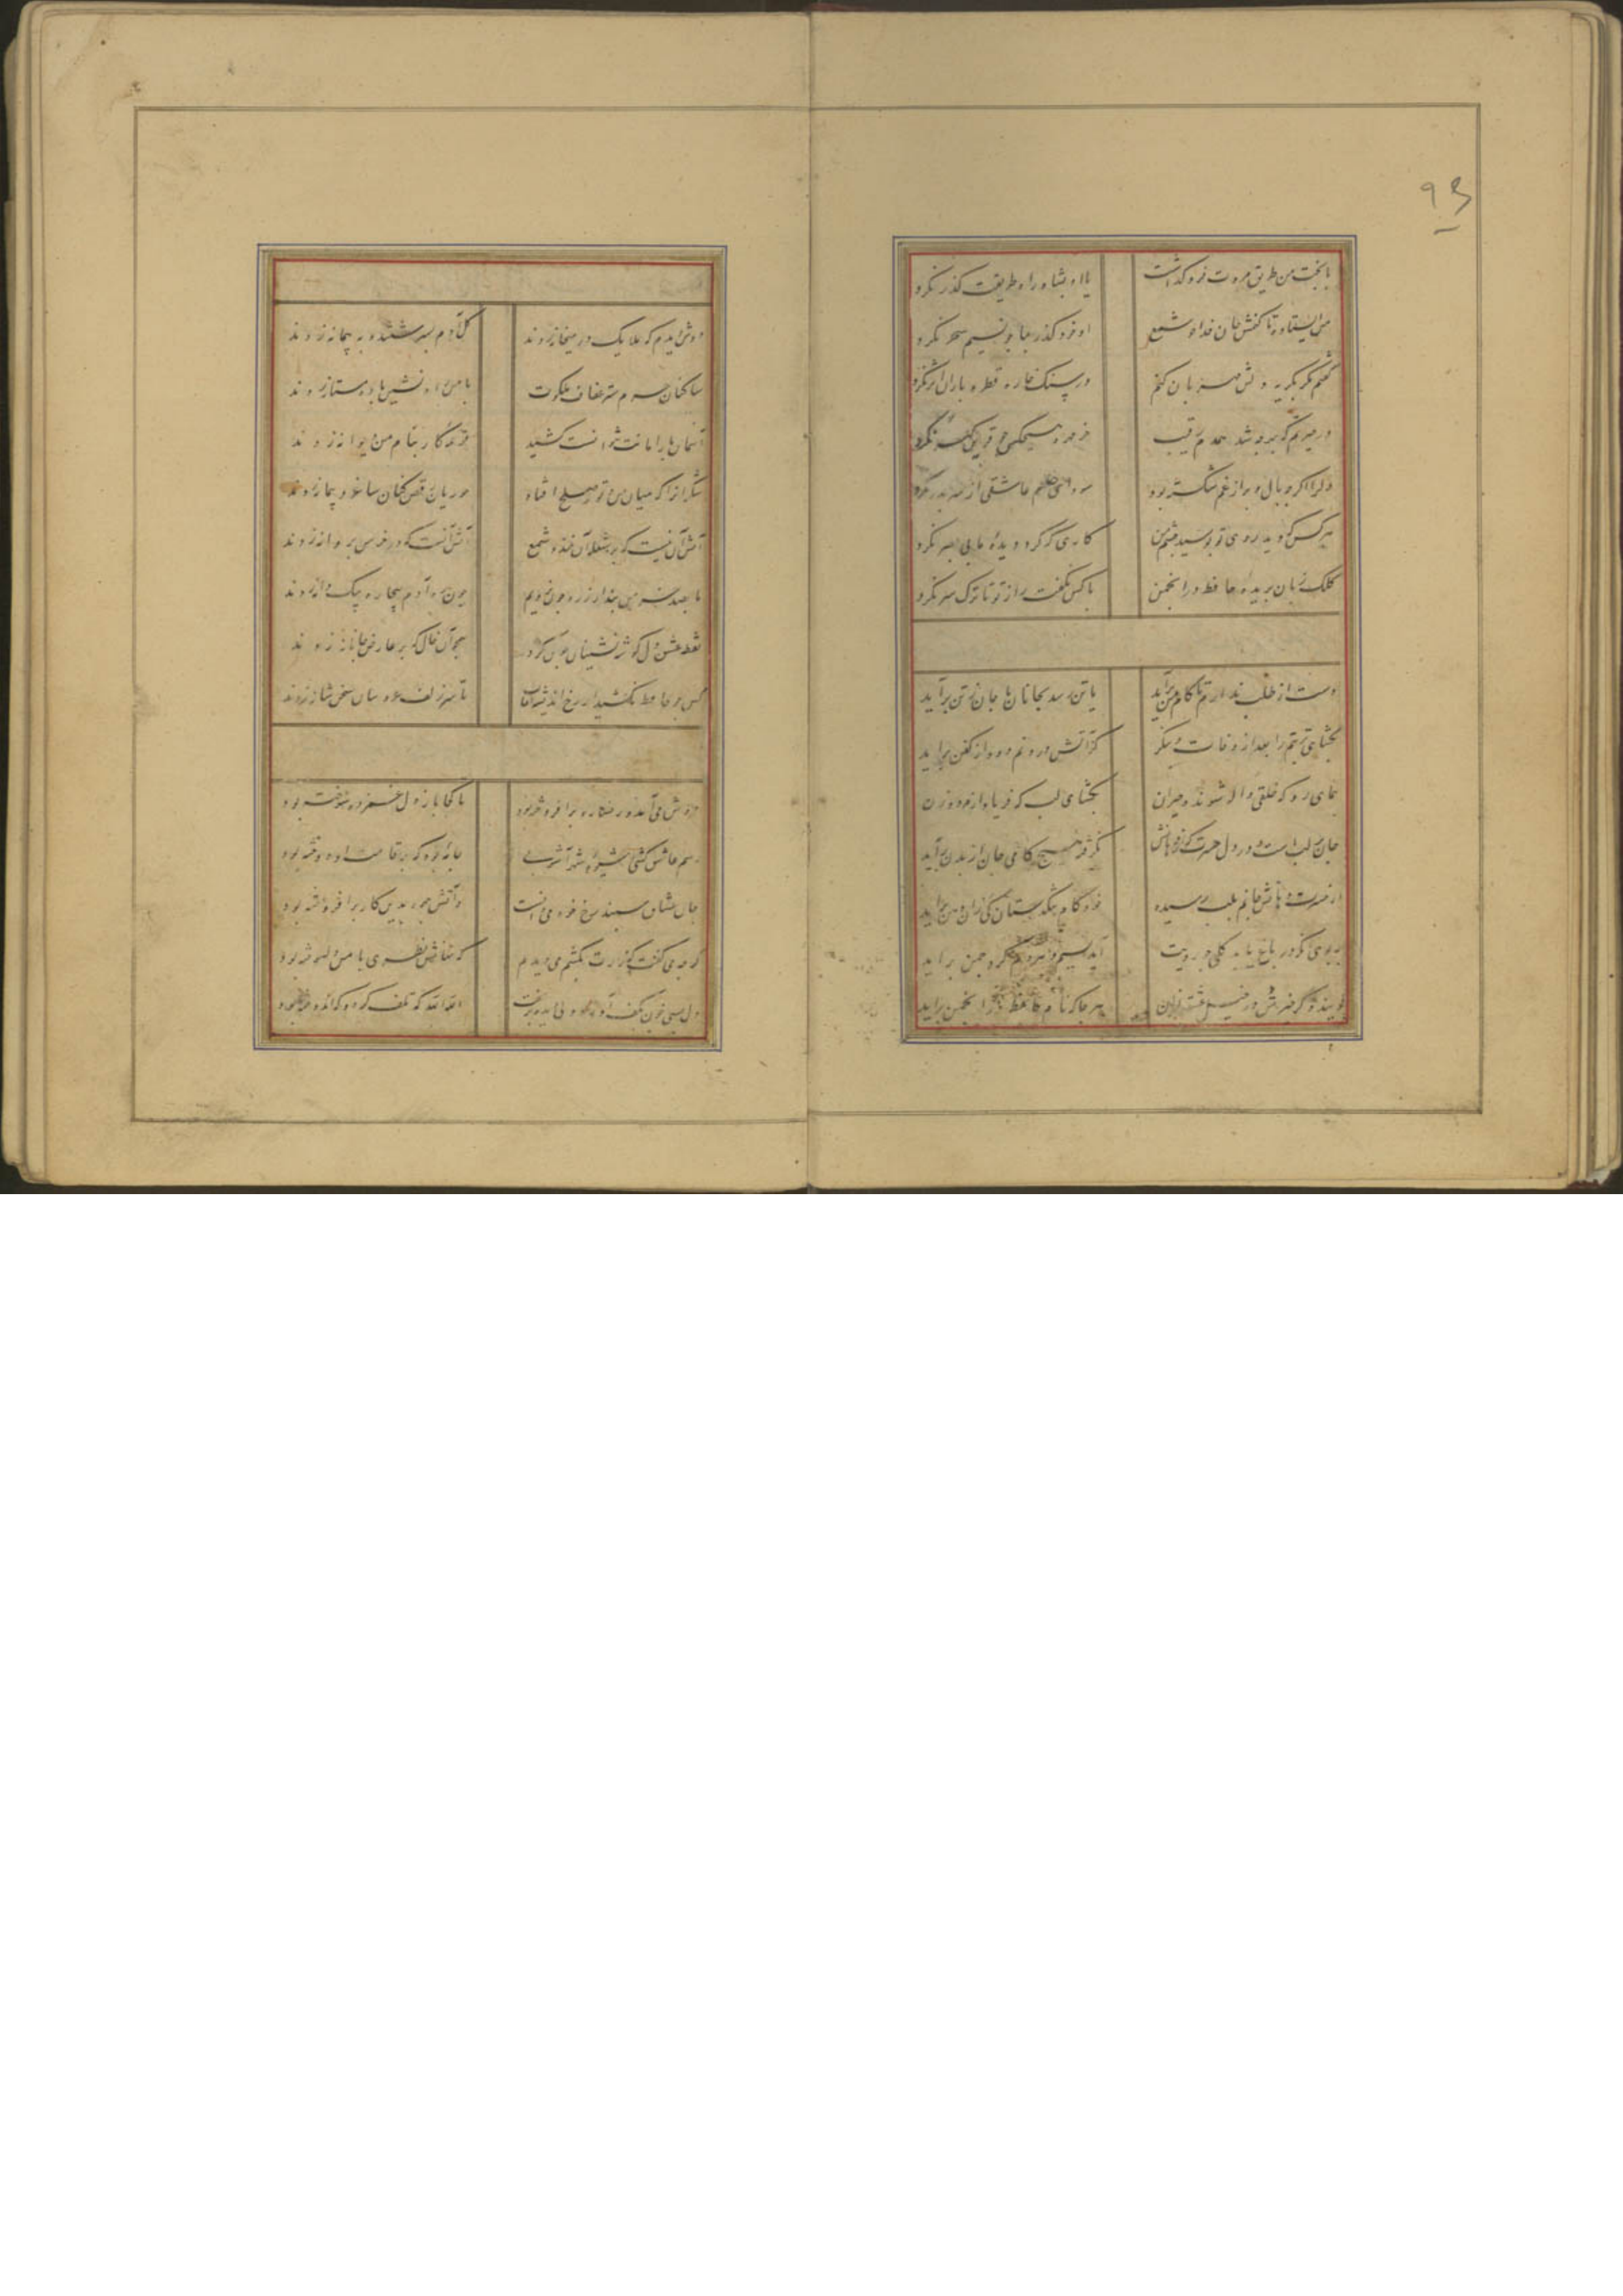 ۹۳
یا بخت من طریق مروت فرو گذاشت
یا او بشاه راه طریقت گذر نکرد
من ایستاده تا کنمش جان فدا چو شمع
او خود گذر بما چو نسیم سحر نکرد
گفتم مگر بگریه دلش مهربان کنم
در سنگ خاره قطره باران اثر نکرد
در حیرتم که بر چه شد همدم رقیب
دلرا اگر چه بال و بر از غم شکسته بود
سودای عاشقی از سر بدر نکرد
هر کس که دید روی تو بوسید چشم من
کاری که کرد دیده ما بی بصر نکرد
کلک زبان بریده حافظ در انجمن
با کس نگفت راز تو تا ترک سر نکرد
دست از طلب ندارم تا کام من برآید
یا تن رسد بجانان یا جان ز تن برآید
بگشای تربتم را بعد از وفات و بنگر
کز آتش درونم دود از کفن برآید
بنمای رو که خلقی واله شوند و حیران
بگشای لب که فریاد از مرد و زن
جان بر لب است و در دل حسرت که از دهانش
نگرفته هیچ کامی جان از بدن برآید
از حسرت دهانش جانم بلب رسیده
خود کام تنگدستان کی زان دهن برآید
بر بوی آنکه در باغ یابد گلی چو رویت
آید نسیم و هر دم گرد چمن برآید
گویند ذکر خیرش در خیل عشقبازان
هر جا که نام حافظ در انجمن برآید
دوش دیدم که ملایک در میخانه زدند
گل آدم بسرشتند و به پیمانه زدند
ساکنان حرم ستر عفاف ملکوت
با من راه نشین باده مستانه زدند
آسمان بار امانت نتوانست کشید
قرعه کار بنام من دیوانه زدند
شکر ایزد که میان من و تو صلح افتاد
حوریان رقص کنان ساغر و پیمانه زدند
آتش آن نیست که بر شعله آن خندد شمع
آتش آنست که در خرمن پروانه زدند
ما بصد خرمن پندار ز ره چون نرویم
چون ره آدم بیچاره بیک دانه زدند
نقطه عشق دل گوشه نشینان خون کرد
همچو آن خال که بر عارض جانانه زدند
کس چو حافظ نکشید از رخ اندیشه نقاب
تا سر زلف عروسان سخن شانه زدند
دوش می آمد و رخساره برافروخته بود
تا کجا باز دل غمزده سوخته بود
رسم عاشق کشی و شیوه شهر آشوبی
جامه بود که بر قامت او دوخته بود
جان عشاق سپند رخ خود می دانست
و آتش چهره بدین کار برافروخته بود
گر چه می گفت که زارت بکشم می دیدم
که نهانش نظری با من دلسوخته بود
دل بسی خون بکف آورد ولی دیده بریخت
الله الله که تلف کرد و که اندوخته بود